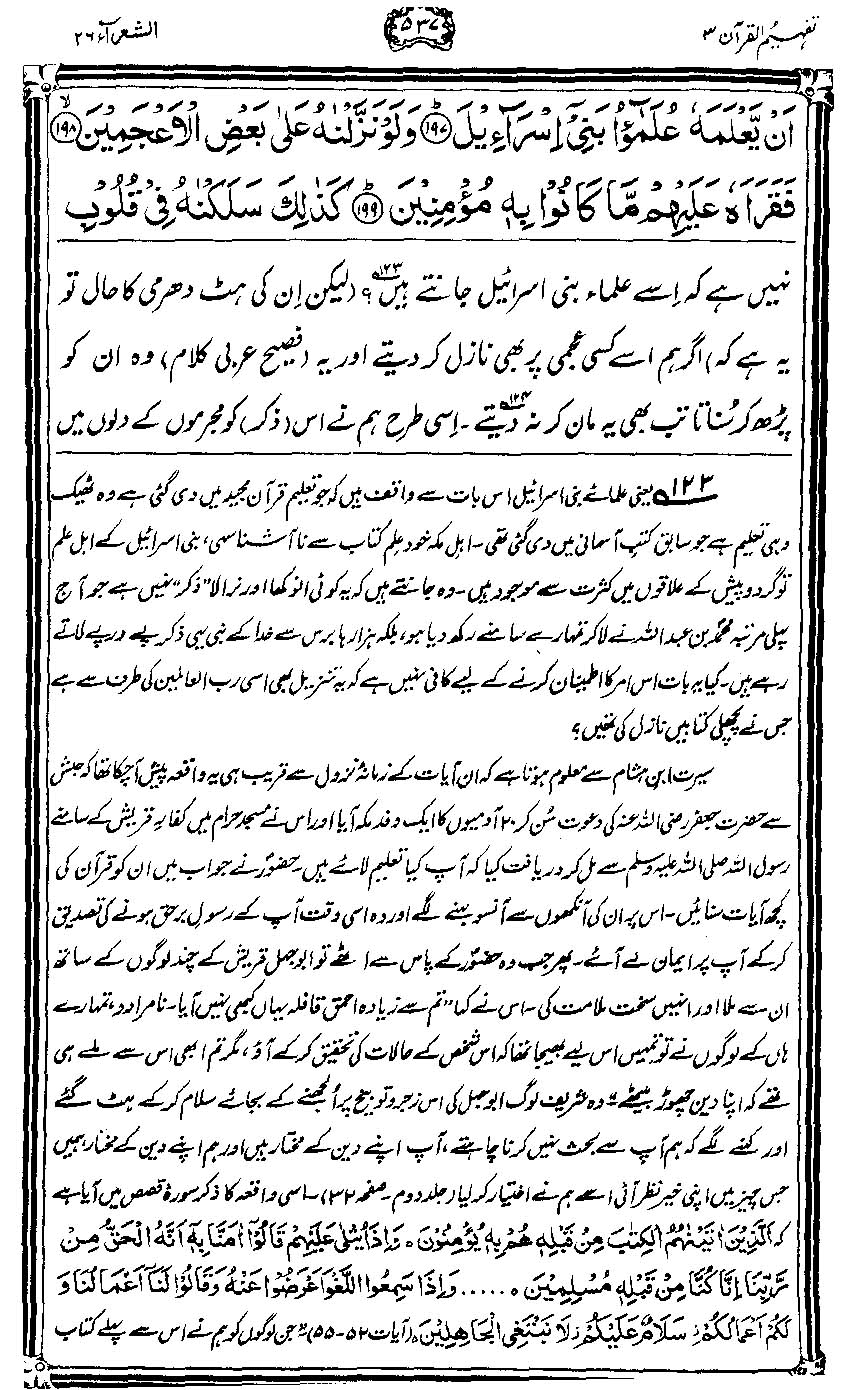 تفہیم القرآن ۳
۵۳۷
الشعرآء ۲۶
اَنْ يَّعْلَمَهٗ عُلَمٰٓؤُا بَنِيْٓ اِسْرَآءِيْلَ ﴿۱۹۷﴾ وَلَوْ نَزَّلْنٰهُ عَلٰى بَعْضِ الْاَعْجَمِيْنَ ﴿۱۹۸﴾
فَقَرَاَهٗ عَلَيْهِمْ مَّا كَانُوْا بِهٖ مُؤْمِنِيْنَ ﴿۱۹۹﴾ كَذٰلِكَ سَلَكْنٰهُ فِيْ قُلُوْبِ
نہیں ہے کہ اِسے علماء بنی اسرائیل جانتے ہیں۱۲۳؟ (لیکن اِن کی ہٹ دھرمی کا حال تو
یہ ہے کہ) اگر ہم اسے کسی عجمی پر بھی نازل کر دیتے اور یہ (فصیح عربی کلام) وہ ان کو
پڑھ کر سُناتا تب بھی یہ مان کر نہ دیتے۱۲۴۔ اِسی طرح ہم نے اس (ذکر) کو مجرموں کے دلوں میں
۱۲۳ یعنی علمائے بنی اسرائیل اس بات سے واقف ہیں کہ جو تعلیم قرآن مجید میں دی گئی ہے وہ ٹھیک
وہی تعلیم ہے جو سابق کتبِ آسمانی میں دی گئی تھی۔ اہل مکہ خود علم کتاب سے نا آشنا سہی، بنی اسرائیل کے اہل علم
تو گرد و پیش کے علاقوں میں کثرت سے موجود ہیں۔ وہ جانتے ہیں کہ یہ کوئی انوکھا اور نرالا "ذکر" نہیں ہے جو آج
پہلی مرتبہ محمدؐ بن عبد اللہ نے لا کر تمہارے سامنے رکھ دیا ہو، بلکہ ہزار ہا برس سے خدا کے نبی یہی ذکر پے در پے لاتے
رہے ہیں۔ کیا یہ بات اس امر کا اطمینان کرنے کے لیے کافی نہیں ہے کہ یہ تنزیل بھی اسی رب العالمین کی طرف سے ہے
جس نے پچھلی کتابیں نازل کی تھیں؟
سیرت ابن ہشام سے معلوم ہوتا ہے کہ ان آیات کے زمانۂ نزول سے قریب ہی یہ واقعہ پیش آ چکا تھا کہ حبش
سے حضرت جعفر رضی اللہ عنہ کی دعوت سُن کر ۲۰ آدمیوں کا ایک وفد مکہ آیا اور اس نے مسجد حرام میں کفارِ قریش کے سامنے
رسول اللہ صلی اللہ علیہ وسلم سے مل کر دریافت کیا کہ آپ کیا تعلیم لائے ہیں۔ حضورؐ نے جواب میں ان کو قرآن کی
کچھ آیات سنائیں۔ اس پر ان کی آنکھوں سے آنسو بہنے لگے اور وہ اسی وقت آپ کے رسول برحق ہونے کی تصدیق
کر کے آپ پر ایمان لے آئے۔ پھر جب وہ حضورؐ کے پاس سے اٹھے تو ابو جہل قریش کے چند لوگوں کے ساتھ
ان سے ملا اور انہیں سخت ملامت کی۔ اس نے کہا "تم سے زیادہ احمق قافلہ یہاں کبھی نہیں آیا۔ نامرادو، تمہارے
ہاں کے لوگوں نے تو تمہیں اس لیے بھیجا تھا کہ اس شخص کے حالات کی تحقیق کر کے آؤ، مگر تم ابھی اس سے ملے ہی
تھے کہ اپنا دین چھوڑ بیٹھے"۔ وہ شریف لوگ ابو جہل کی اس زجر و توبیخ پر اُلجھنے کے بجائے سلام کر کے ہٹ گئے
اور کہنے لگے کہ ہم آپ سے بحث نہیں کرنا چاہتے، آپ اپنے دین کے مختار ہیں اور ہم اپنے دین کے مختار، ہمیں
جس چیز میں اپنی خیر نظر آئی اسے ہم نے اختیار کر لیا (جلد دوم۔ صفحہ ۳۲)۔ اسی واقعہ کا ذکر سورۂ قصص میں آیا ہے
کہ اَلَّذِيْنَ اٰتَيْنٰهُمُ الْكِتٰبَ مِنْ قَبْلِهٖ هُمْ بِهٖ يُؤْمِنُوْنَ ۰ وَاِذَا يُتْلٰى عَلَيْهِمْ قَالُوْٓا اٰمَنَّا بِهٖٓ اِنَّهُ الْحَقُّ مِنْ
رَّبِّنَا اِنَّا كُنَّا مِنْ قَبْلِهٖ مُسْلِمِيْنَ ۰ ..... وَاِذَا سَمِعُوا اللَّغْوَ اَعْرَضُوْا عَنْهُ وَقَالُوْا لَنَآ اَعْمَالُنَا وَ
لَكُمْ اَعْمَالُكُمْ سَلَامٌ عَلَيْكُمْ لَا نَبْتَغِي الْجَاهِلِيْنَ ۰ (آیات ۵۲-۵۵) "جن لوگوں کو ہم نے اس سے پہلے کتاب